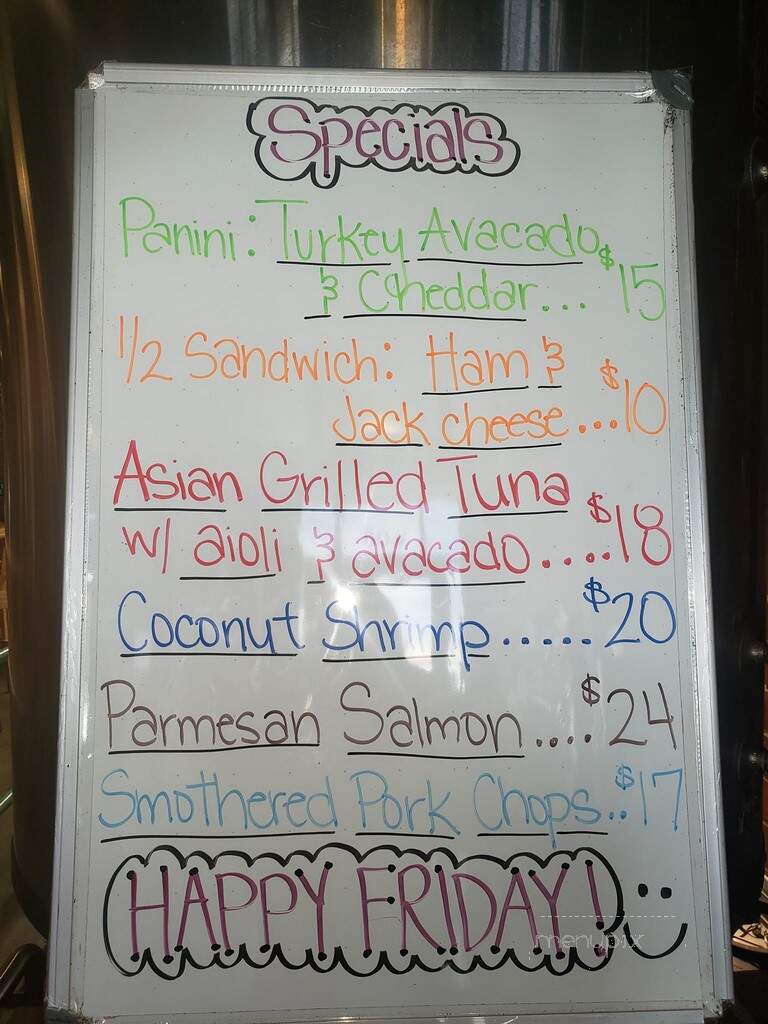 Specials
Panini: Turkey Avacado
& Cheddar... $15
1/2 Sandwich: Ham &
Jack cheese...$10
Asian Grilled Tuna
w/ aioli & avacado....$18
Coconut Shrimp.....$20
Parmesan Salmon....$24
Smothered Pork Chops..$17
HAPPY FRIDAY!
menupix